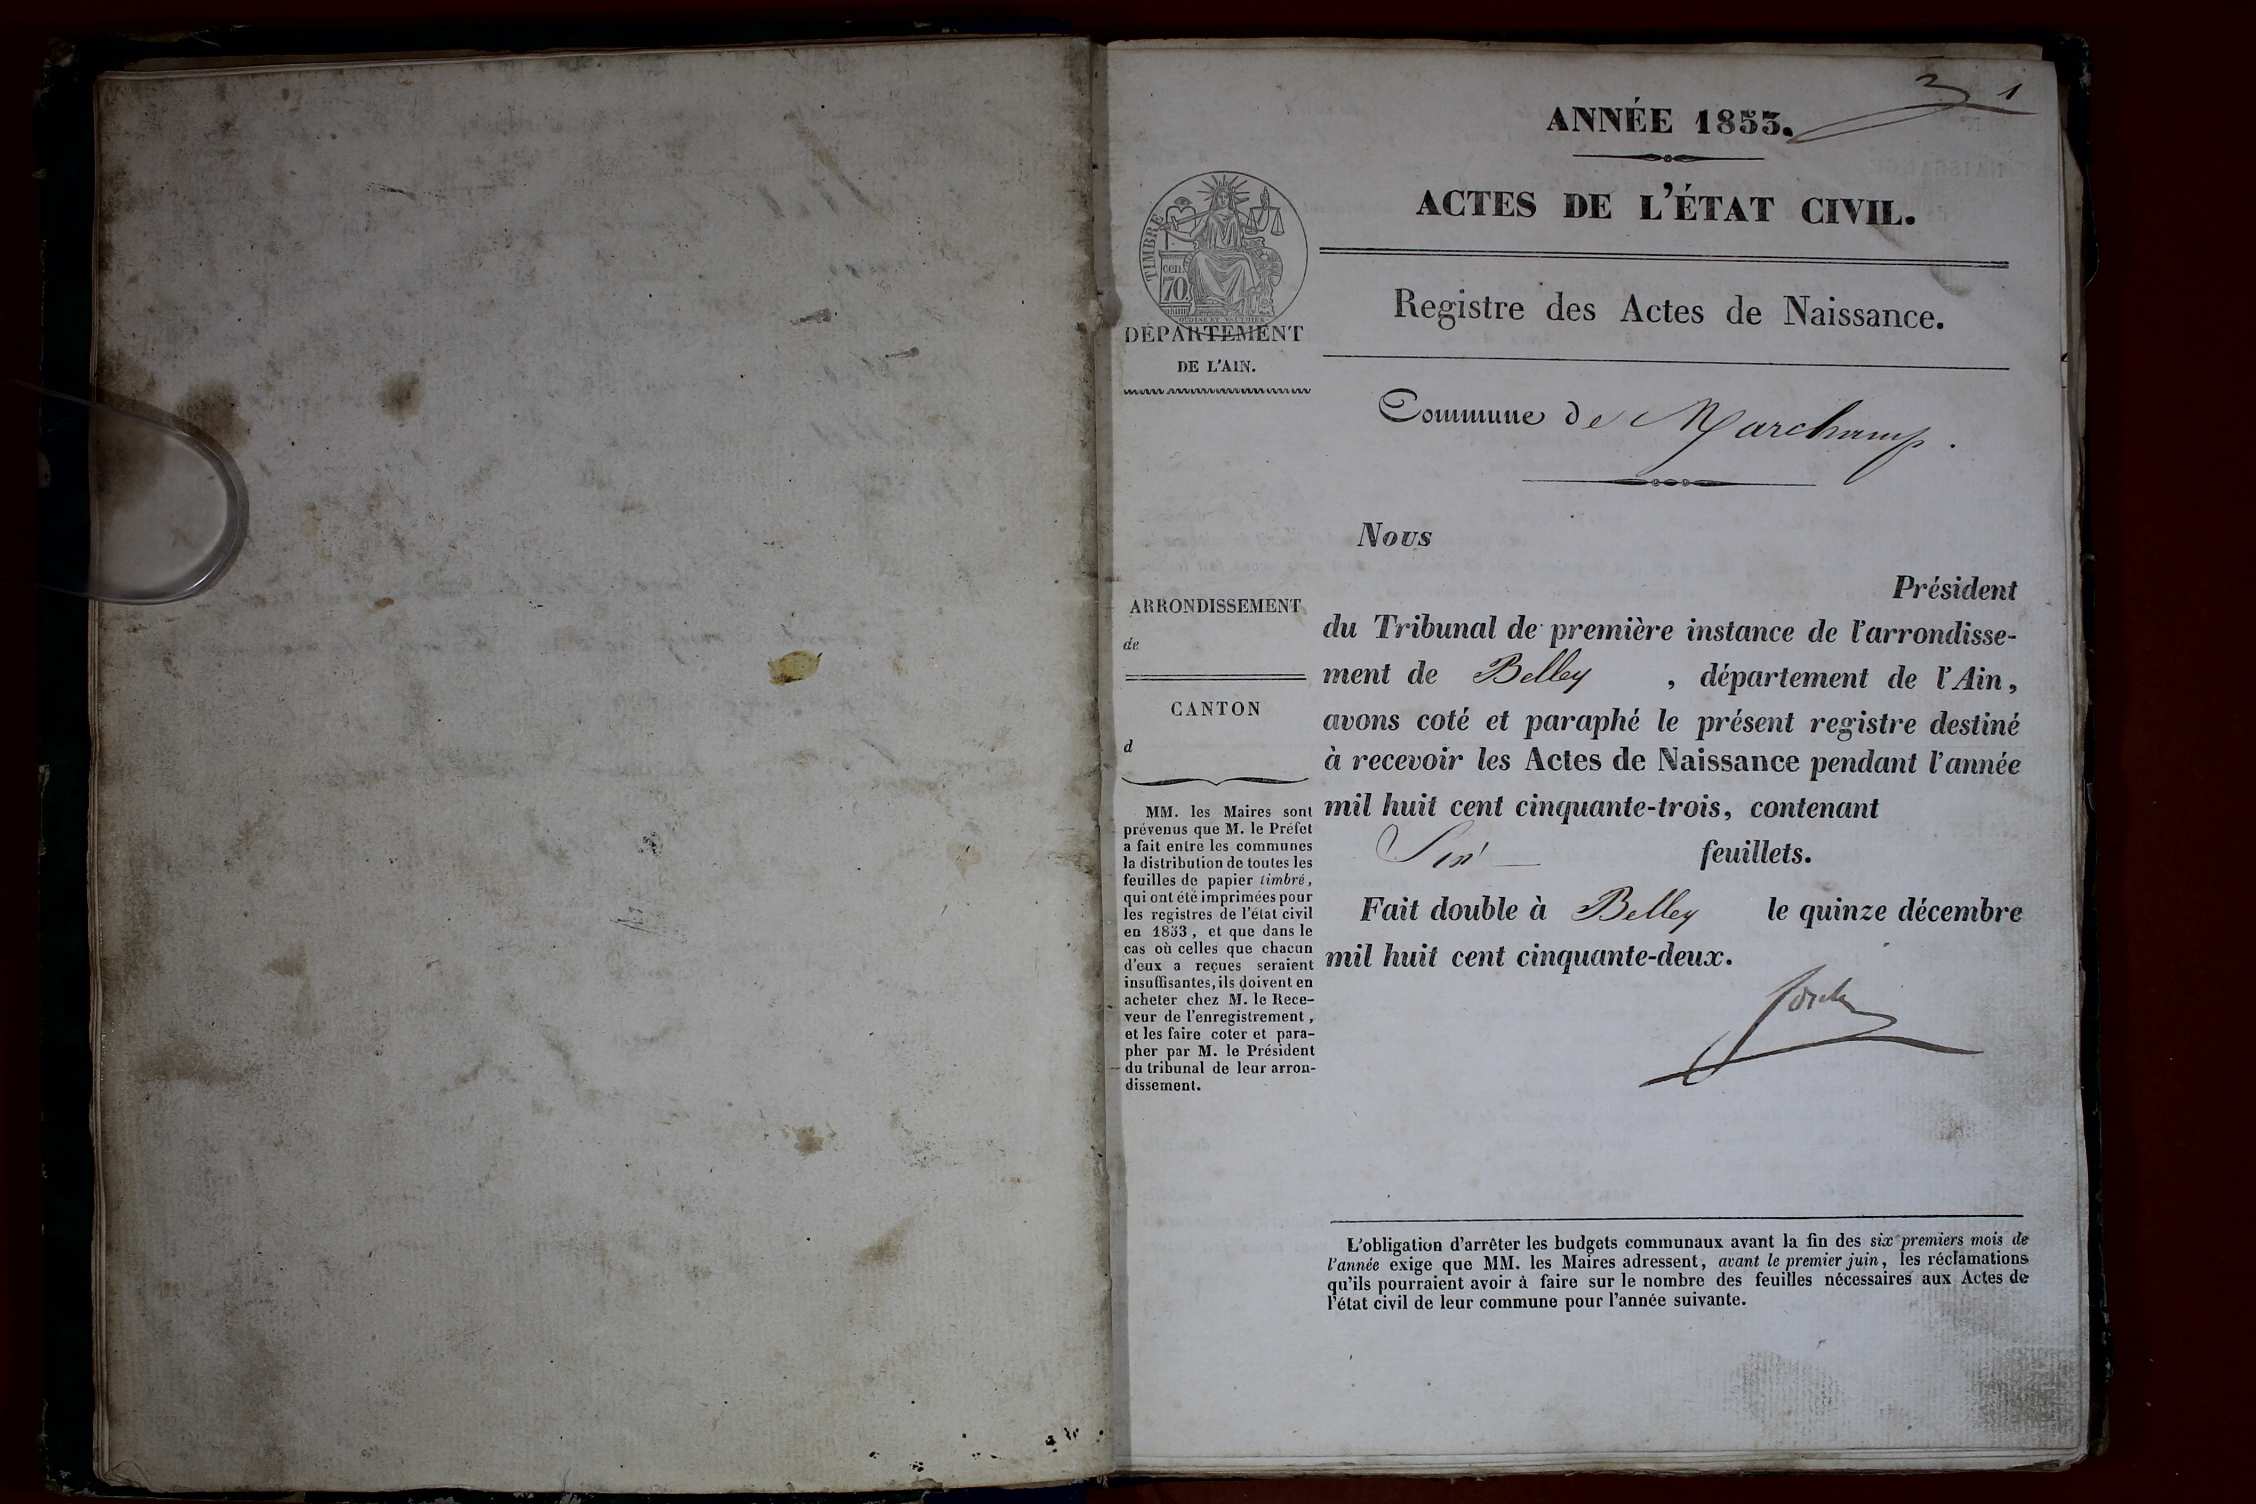 1
ANNÉE 1853.
ACTES DE L'ÉTAT CIVIL.
TIMBRE
cen.
70
DÉPARTEMENT
DE L'AIN.
Registre des Actes de Naissance.
Commune de Marchamp.
Nous
Président
du Tribunal de première instance de l'arrondisse-
ment de Belley , département de l'Ain,
avons coté et paraphé le présent registre destiné
à recevoir les Actes de Naissance pendant l'année
mil huit cent cinquante-trois, contenant
Six feuillets.
Fait double à Belley le quinze décembre
mil huit cent cinquante-deux.
ARRONDISSEMENT
de
CANTON
d
MM. les Maires sont
prévenus que M. le Préfet
a fait entre les communes
la distribution de toutes les
feuilles de papier timbré,
qui ont été imprimées pour
les registres de l'état civil
en 1853, et que dans le
cas où celles que chacun
d'eux a reçues seraient
insuffisantes, ils doivent en
acheter chez M. le Rece-
veur de l'enregistrement,
et les faire coter et para-
pher par M. le Président
du tribunal de leur arron-
dissement.
L'obligation d'arrêter les budgets communaux avant la fin des six premiers mois de
l'année exige que MM. les Maires adressent, avant le premier juin, les réclamations
qu'ils pourraient avoir à faire sur le nombre des feuilles nécessaires aux Actes de
l'état civil de leur commune pour l'année suivante.